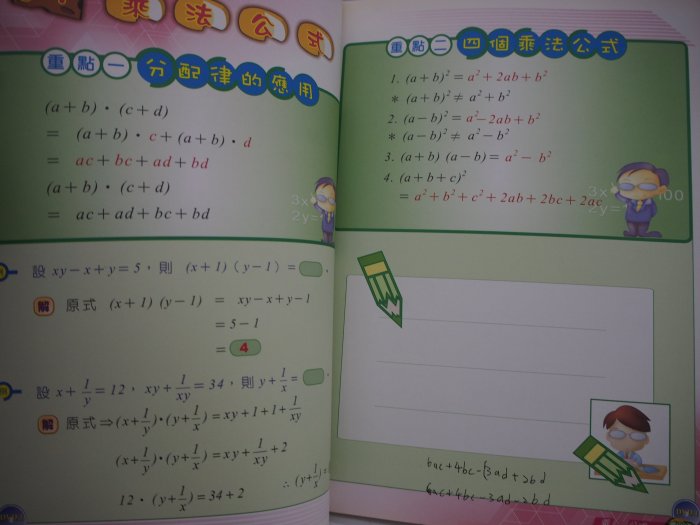 乘法公式
重點一 分配律的應用
(a+b)·(c+d)
= (a+b)·c+(a+b)·d
= ac+bc+ad+bd
(a+b)·(c+d)
= ac+ad+bc+bd
3x
2y=
設 xy-x+y=5,則 (x+1)(y-1)=      .
解 原式 (x+1)(y-1) = xy-x+y-1
=5-1
= 4
設 x+1/y=12, xy+1/xy=34,則 y+1/x=      .
解 原式⇒(x+1/y)·(y+1/x)=xy+1+1+1/xy
(x+1/y)·(y+1/x)=xy+1/xy+2
12·(y+1/x)=34+2
∴(y+1/x)=
重點二 四個乘法公式
1. (a+b)²=a²+2ab+b²
* (a+b)²≠a²+b²
2. (a-b)²=a²-2ab+b²
* (a-b)²≠a²-b²
3. (a+b)(a-b)=a²-b²
4. (a+b+c)²
=a²+b²+c²+2ab+2bc+2ac
3x
100
2y=
6ac+4bc-(3ad+2bd
6ac+4bc-3ad-2bd